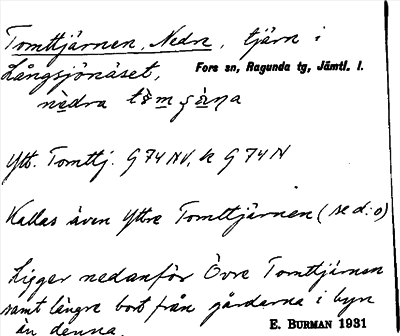 Tomttjärnen, Nedre, tjärn i
Långsjönäset, Fors sn, Ragunda tg, Jämtl. l.
nèdra
Ytt. Tomttj. G 74 NV, k G 74 N
Kallas även Yttre Tomttjärnen (se d:o)
Ligger nedanför Övre Tomttjärnen
samt längre bort från gårdarna i byn
än denna.
E. BURMAN 1931